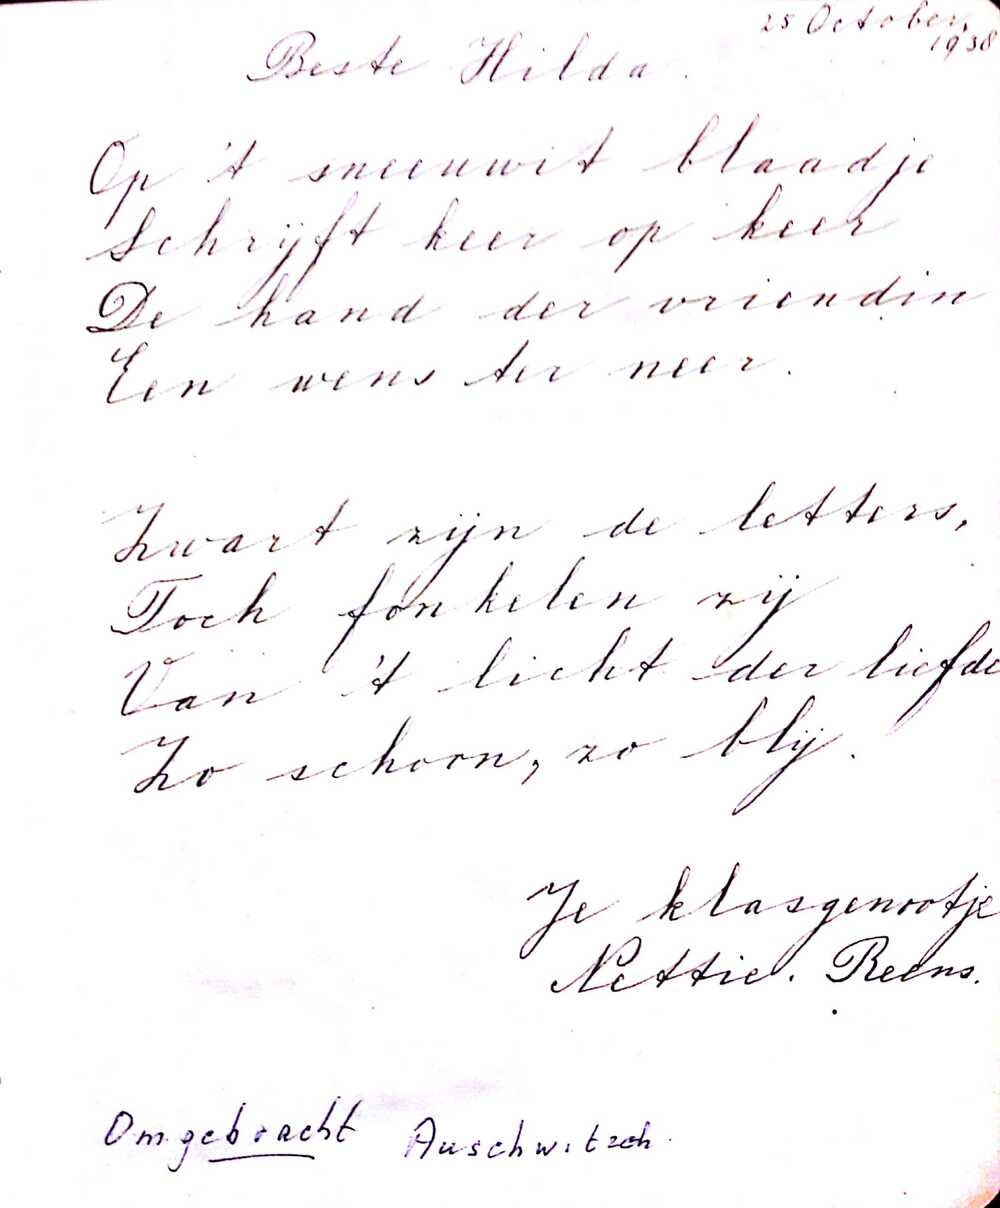 25 October,
1938
Beste Hilda.
Op 't sneeuwit blaadje
Schrijft keer op keer
De hand der vriendin
Een wens ter neer.
Zwart zijn de letters,
Toch fonkelen zij
Van 't licht der liefde
Zo schoon, zo blij.
Je klasgenootje
Nettie. Reens.
Omgebracht Auschwitzch.